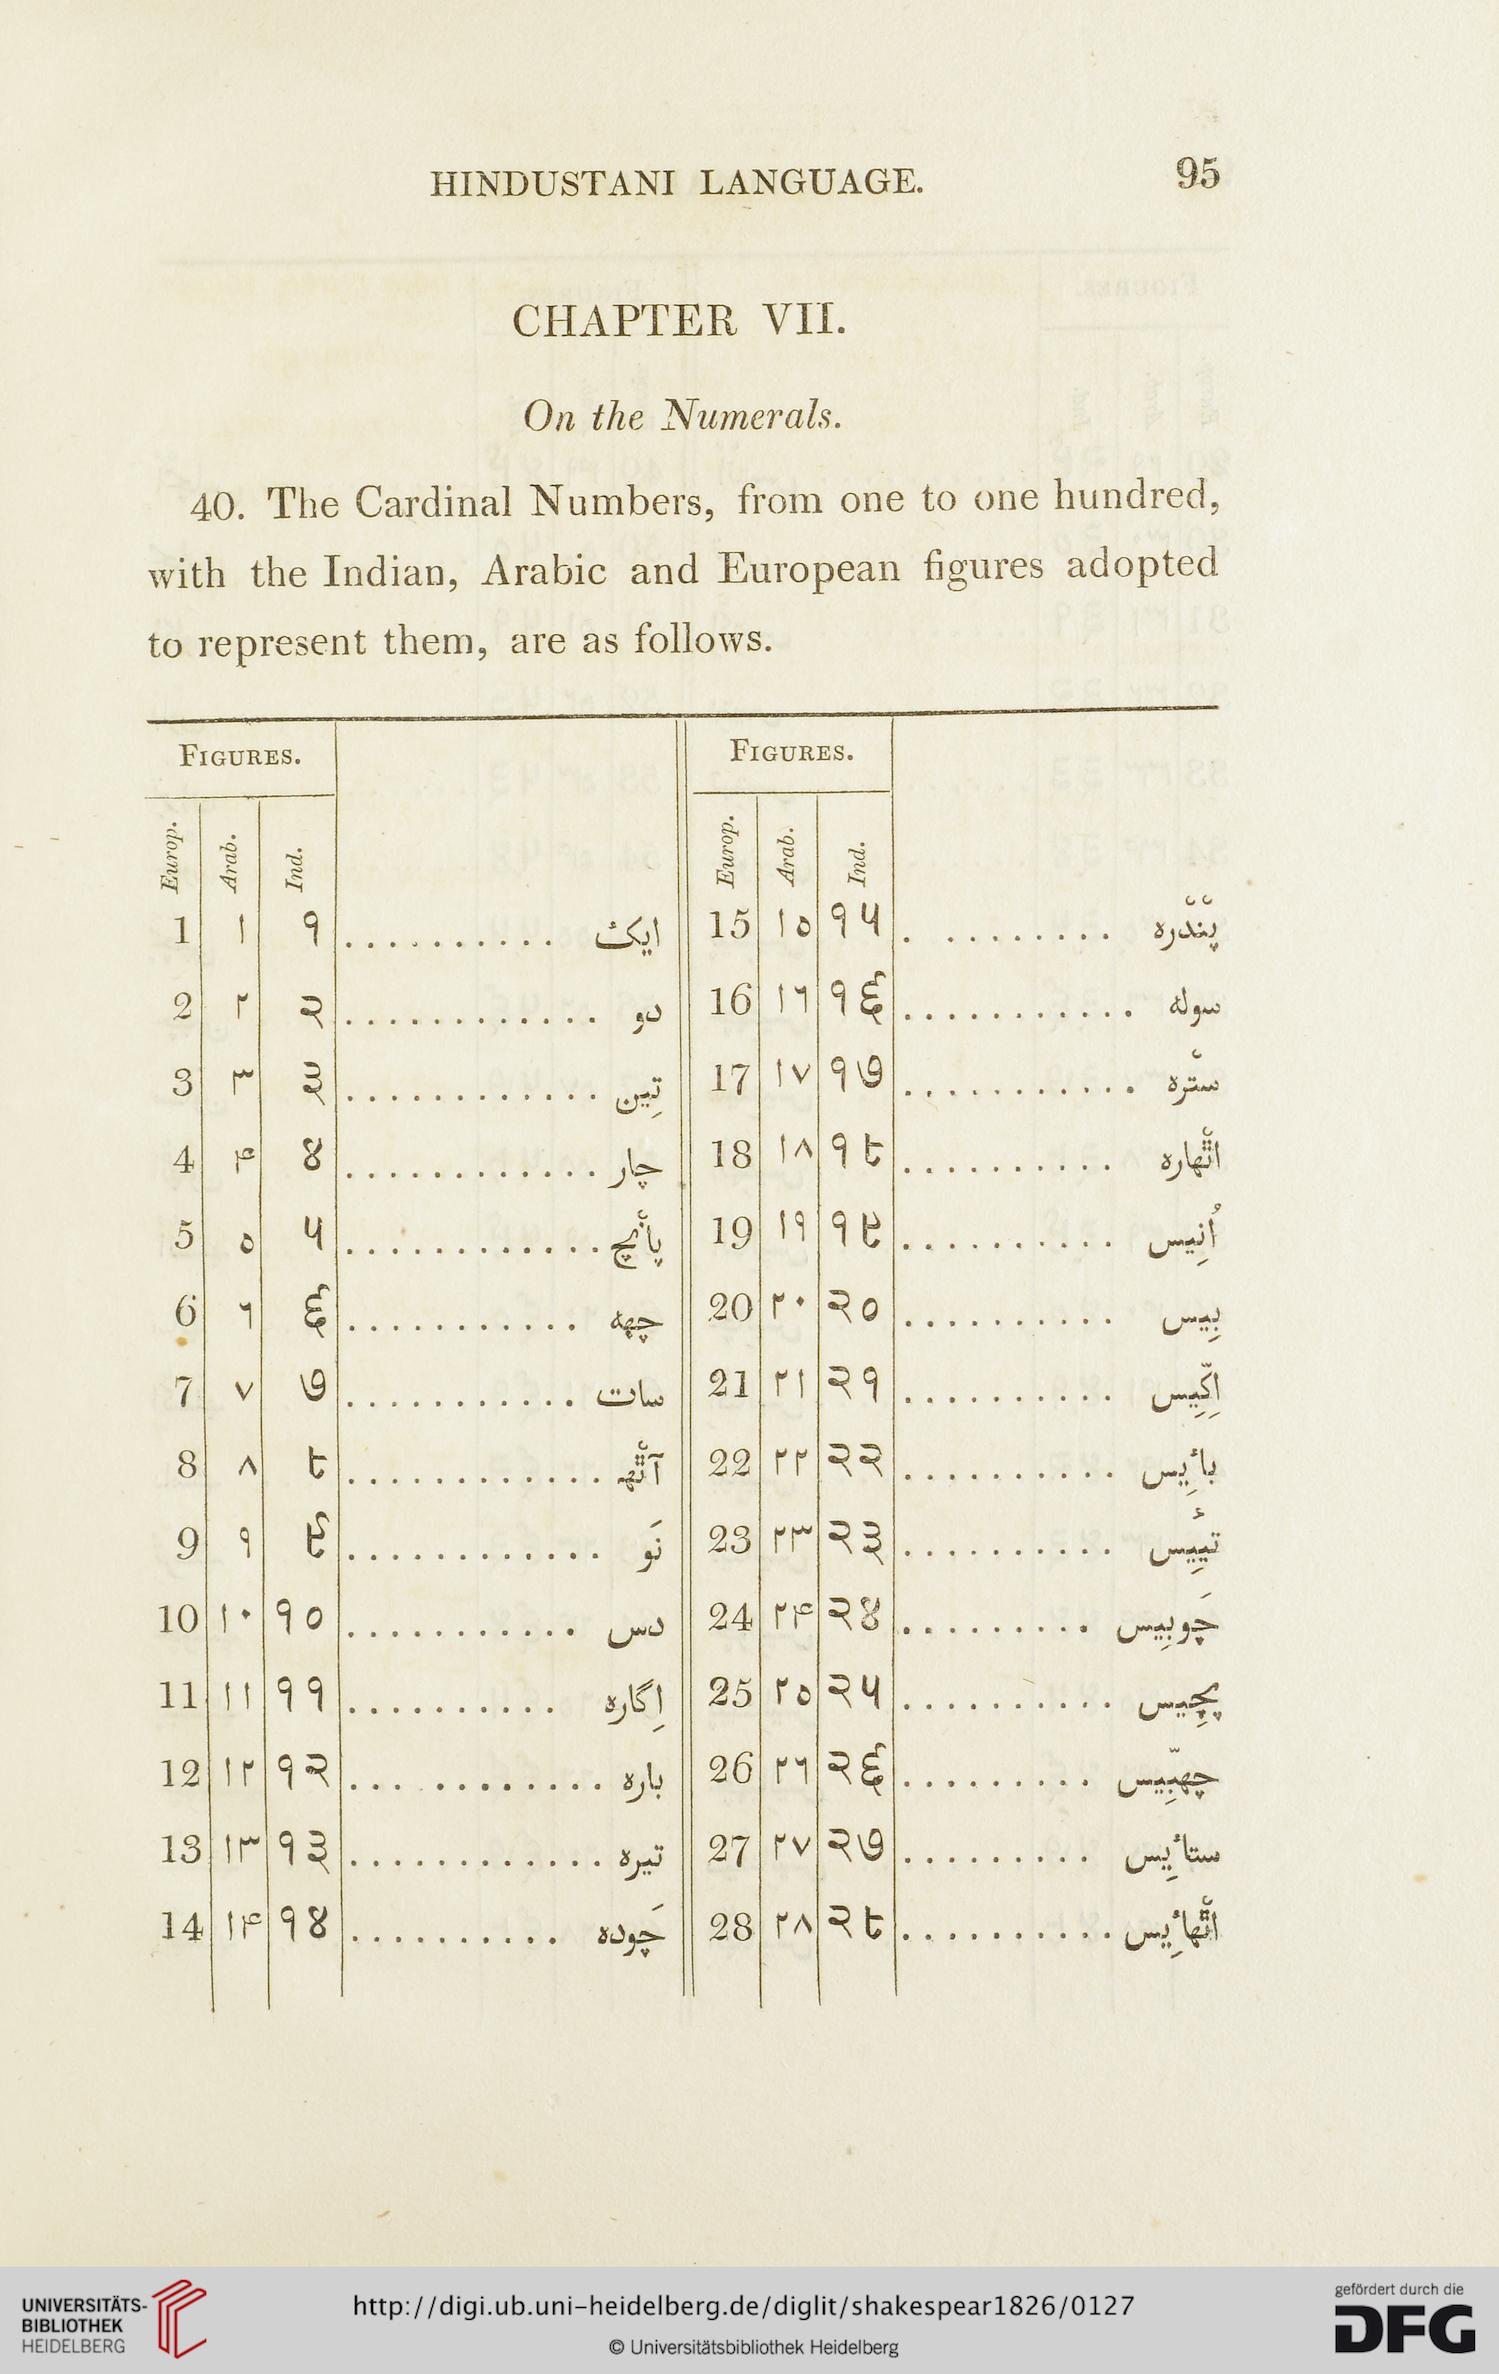 HINDUSTANI LANGUAGE. 95
CHAPTER VII.
On the Numerals.
40. The Cardinal Numbers, from one to one hundred,
with the Indian, Arabic and European figures adopted
to represent them, are as follows.
FIGURES. FIGURES.
Europ. Arab. Ind. Europ. Arab. Ind.
1 ١ १ .......... ايك 15 ١٥ १५ . ........ پنْدْره
2 ٢ २ ............ دو 16 ١٦ १६ ........... سوله
3 ٣ ३ ............ تِين 17 ١٧ १७ ........... ستْره
4 ۴ ४ ............ چار 18 ١٨ १८ .......... اٿْهاره
5 ٥ ५ ............ پانْچ 19 ١٩ १९ .......... اُنِيس
6 ٦ ६ ........... چهه 20 ٢٠ २० .......... بِيس
7 ٧ ७ ........... سات 21 ٢١ २१ .......... اِكِّيس
8 ٨ ८ ............ آٿْهه 22 ٢٢ २२ .......... بائِيس
9 ٩ ९ ............ نَو 23 ٢٣ २३ .......... تيئِيس
10 ١٠ १० ........... دس 24 ٢۴ २४ ......... چَوبِيس
11 ١١ ११ .......... اِگاره 25 ٢٥ २५ .......... پچِيس
12 ١٢ १२ ... ........ باره 26 ٢٦ २६ ......... چهبِّيس
13 ١٣ १३ ............ تيره 27 ٢٧ २७ ......... ستائِيس
14 ١۴ १४ .......... چَوده 28 ٢٨ २८ .......... اٿْهائِيس
UNIVERSITÄTS-
BIBLIOTHEK
HEIDELBERG
http://digi.ub.uni-heidelberg.de/diglit/shakespear1826/0127
© Universitätsbibliothek Heidelberg
gefördert durch die
DFG